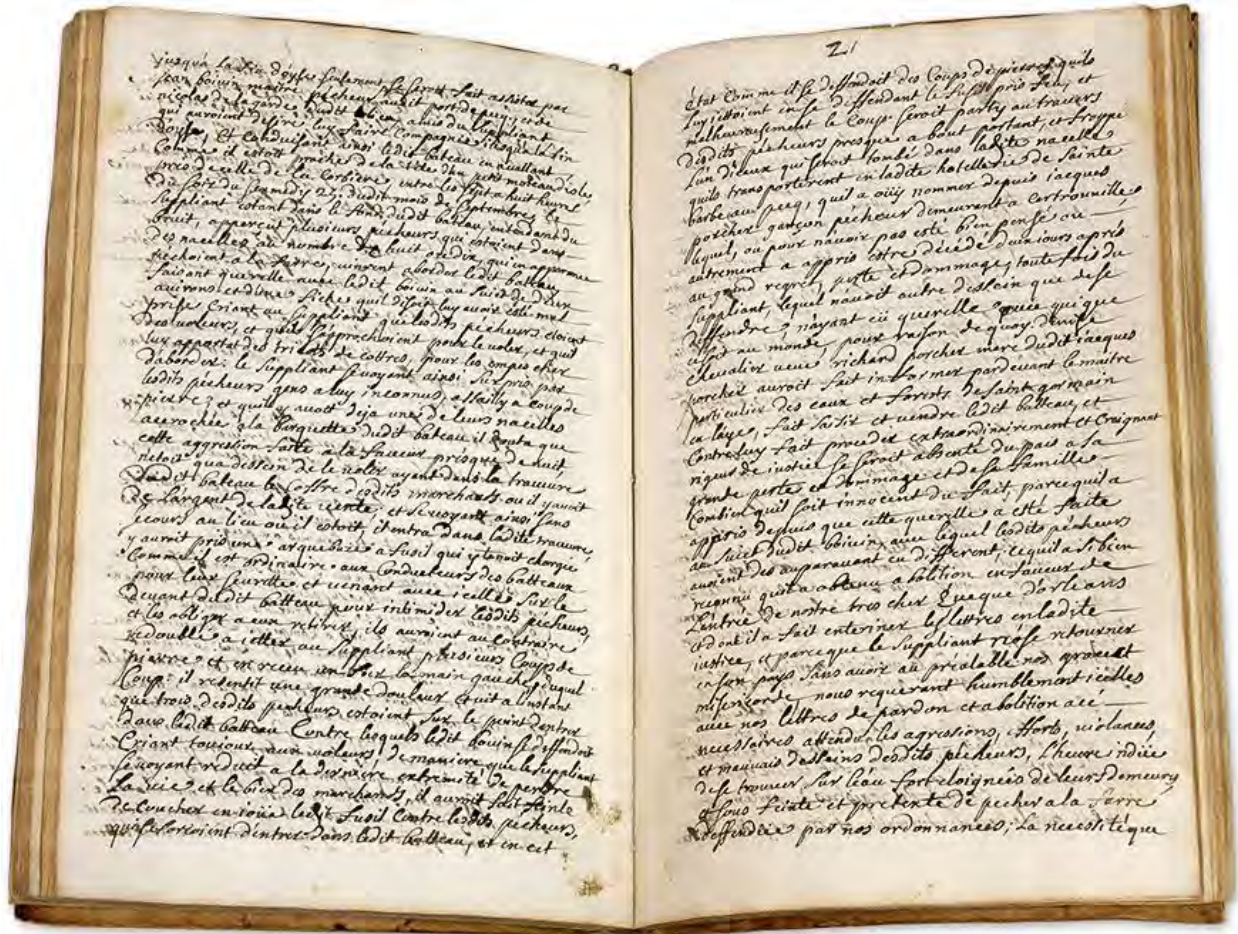 jusqu'a la fin d'oyse seulement se seroit fait assister par
jean boivin maitre pecheur audit port de pecq, et de
nicolas delagarde dudit lieu amis du suppliant
qui auroient desiré luy faire Compagnie jusqu'a la fin
doyse, Et Conduisant ainsi ledit bateau en avallant
Comme il estoit proche de la tête d'un petit morceau d'isles
pres de celle de la Corbiere entre les sept a huit heures
du soir du Sammedy 27 dudit mois de septembre, le
Suppliant estant dans le fond dudit bateau, entendant du
bruit, apperceut plusieurs pecheurs qui estoient dans
des nacelles au nombre de huit ou dix, qui en apparence
pechoient a la ferre, vinrent aborder ledit bateau,
faisant querelle avec ledit boivin au sujet de deux
avirons et d'une fiche quil disoit luy avoir esté mal
prise Criant au suppliant que lesdits pecheurs etoient
des voleurs, et quils s'approchoient pour le voler, et quil
luy apportat des tricots de cottres, pour les empescher
d'aborder: le suppliant se voyant ainsi surpris par
lesdits pecheurs gens a luy inconnus, assailly a coup de
pierre, et quils avoit deja une de leurs nacelles
accrochée a la barquette dudit bateau il douta que
cette aggression faite a la faveur presque de nuit
netoit qua dessein de le voler ayant dans la travure
dudit bateau le coffre desdits marchands ou il y avoit
de l'argent de ladite vente, et se voyant ainsi sans
secours au lieu ou il estoit, il entra dans ladite travure
y auroit pris une arquebuze a fusil qui y tenoit chargé
Comme il est ordinaire aux Conducteurs des batteaux
pour leur seuretté, et venant avec icelle sur le
devant dudit batteau pour intimider lesdits pecheurs,
et les obliger a eux retirer, ils auroient au contraire
redoublé a jetter au suppliant plusieurs Coups de
pierre et en receu un sur la main gauche, duquel
Coup il resentit une grande douleur, et vit a linstant
que trois desdits pecheurs estoient sur le point d'entrer
dans ledit batteau Contre lesquels ledit boivin se deffendoit
Criant toujour aux voleurs, de maniere que le suppliant
se voyant reduit a la derniere extremité de perdre
la vie et le bien des marchands, il auroit fait feinte
de Coucher en joüe ledit fusil Contre lesdits pecheurs,
qui s'efforcoient d'entrer dans ledit batteau, et en cet
21
état Comme il se deffendoit des Coups de pierres quils
luy jettoient in se deffendant le fusil pris feu, et
malheureusement le coup seroit party au travers
desdits pecheurs presque a bout portant, et frappé
L'un d'iceux qui seroit tombé dans ladite nacelle
quils transporterent en ladite hotellerie de Sainte
barbe au pecq, quil a oüy nommer depuis jacques
porcher garçon pecheur demeurant a Certrouville,
lequel, ou pour navoir pas esté bien pensé ou
autrement a appris estre decedé deux jours apres
au grand regret, perte et dommage, toute fois du
suppliant, lequel navoit autre dessein que de se
deffendre, n'ayant eü querelle avec qui que
ce soit au monde, pour raison de quoy denise
Chevalier veuve richard porcher mere dudit jacques
porcher auroit fait informer pardevant le maitre
particulier des eaux et forests de saint germain
en laye, fait saisir et vendre ledit batteau, et
Contre luy fait proceder extraordinairement et Craignant
rigeur de justice se seroit absenté du païs a sa
grande perte et dommage et de sa famille
Combien quil soit innocent du fait, parce quil a
appris depuis que cette querelle a esté faite
au sujet dudit boivin, avec lequel lesdits pecheurs
avoient des auparavant eu different, ce quil a si bien
reconnu quil a obtenu abolition en faveur de
L'entrée de nostre tres cher Eveque d'orleans
et dont il a fait enteriner les lettres en ladite
justice, et parce que le suppliant n'ose retourner
en son pays sans avoir au prealable nos grace et
misericorde, nous requerant humblement icelles
avec nos lettres de pardon et abolition a cé
necessaires attendu les agressions, efforts, violances,
et mauvais desseins desdits pecheurs, L'heure indüe
de se trouver sur l'eau fort eloignés de leurs demeures,
sous feinte et pretexte de pecher a la ferre
deffendüe par nos ordonnances; La necessité que